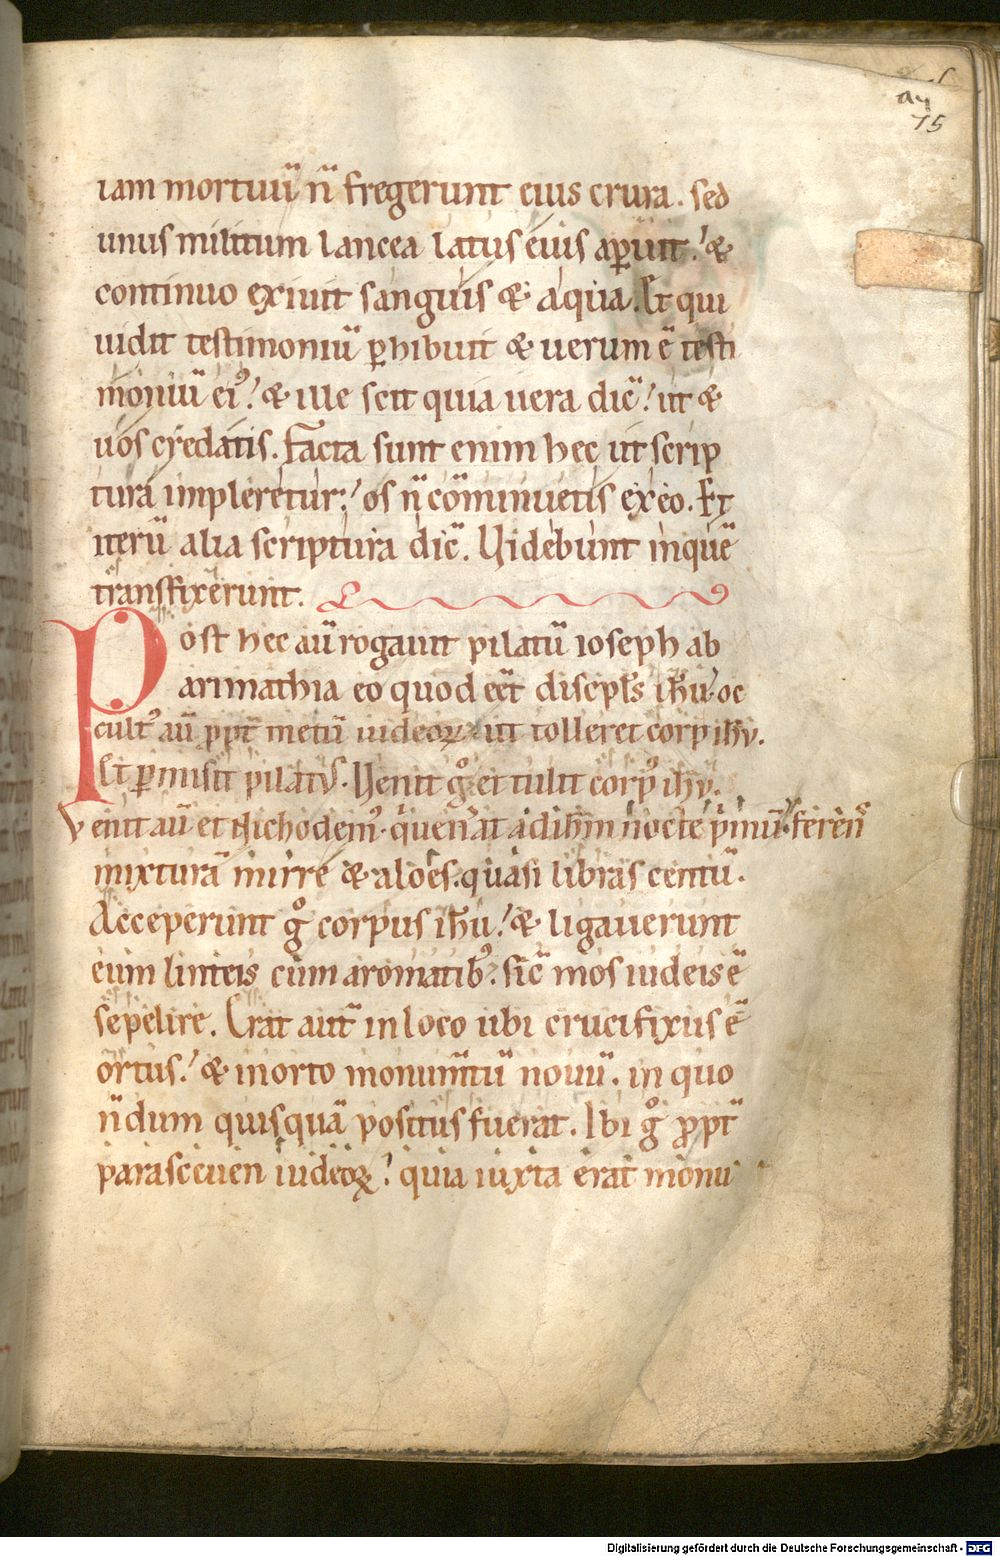 ay
15
iam mortuū n̄ fregerunt eius crura. sed
unus militum lancea latus eius aꝑuit. &
continuo exiuit sanguis & aqua. Et qui
uidit testimoniū ꝑhibuit & uerum ē testi
moniū ei᾿ & ille scit quia uera dic̄ ut &
uos credatis. Facta sunt enim hec ut scrip
tura impleretur; os n̄ cōminuetis ex eo. Et
iterū alia scriptura dic̄. Uidebunt in quē
transfixerunt.
Post hec aū rogauit pilatū ioseph ab
arimathia eo quod eēt discipl̄s ih̄u. oc
cult᾿ aū ꝓpt̄ metū iudeoꝝ ut tolleret corp ih̄u.
Et ꝑmisit pilatus. Uenit gͦ et tulit corp᾿ ih̄u.
Venit aū et Nichodem᾿ qui uen̄at ad ih̄m nocte pͥmū ferens
mixturā mirre & aloes. quasi libras centū.
Acceperunt gͦ corpus ih̄u. & ligauerunt
eum linteis cum aromatib᾿ sic̄ mos iudeis ē
sepelire. Erat aut̄ in loco ubi crucifixus ē
ortus. & in orto monum̄tū nouū. in quo
n̄dum quisquā positus fuerat. Ibi gͦ ꝓpt̄
parasceuen iudeoꝝ quia iuxta erat monu
Digitalisierung gefördert durch die Deutsche Forschungsgemeinschaft - DFG